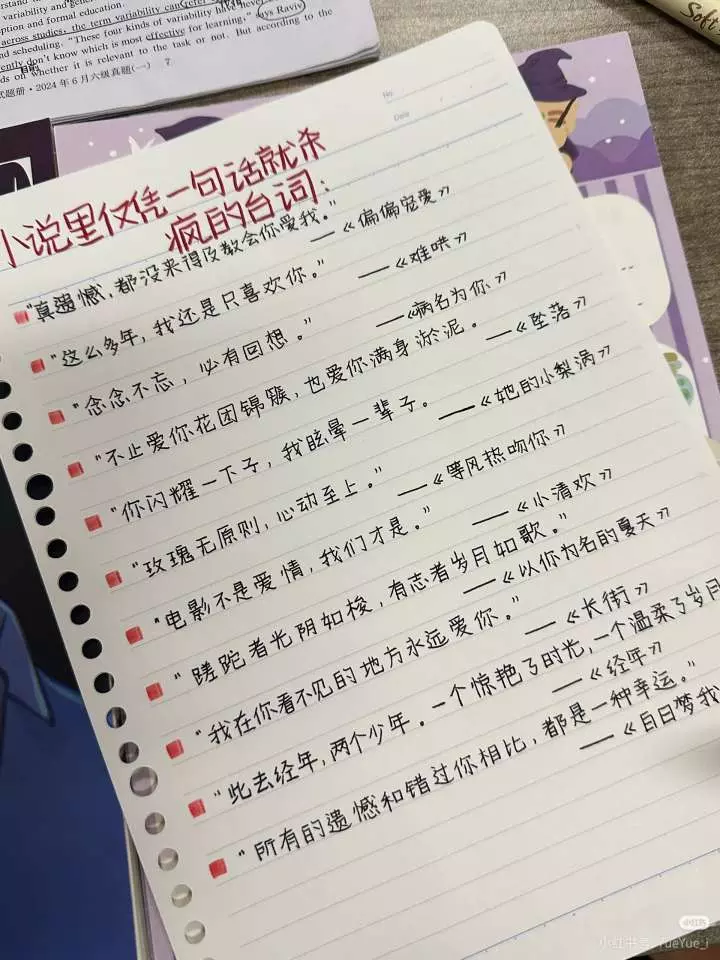 across studies, the term variability can refer
and scheduling. "These four kinds of variability have never
for learning," says Raviv
don't know which is most effective
on whether it is relevant to the task or not. But according to the
题册·2024年6月六级真题(一) 7
Soft
No.
Date
小说里仅凭一句话就杀
疯的台词:
"真遗憾,都没来得及教会你爱我。"
——《偏偏宠爱》
"这么多年,我还是只喜欢你。"
——《难哄》
"念念不忘,必有回想。"
——《病名为你》
"不止爱你花团锦簇,也爱你满身淤泥。
——《坠落》
"你闪耀一下子,我眩晕一辈子。
——《她的小梨涡》
"玫瑰无原则,心动至上。"
——《等风热吻你》
"电影不是爱情,我们才是。"
——《小清欢》
"蹉跎者光阴如梭,有志者岁月如歌。"
——《以你为名的夏天》
"我在你看不见的地方永远爱你。"
——《长街》
"此去经年,两个少年。一个惊艳了时光,一个温柔了岁月
——《经年》
"所有的遗憾和错过你相比,都是一种幸运。"
——《白日梦我
小红书
小红书号: YueYue_i